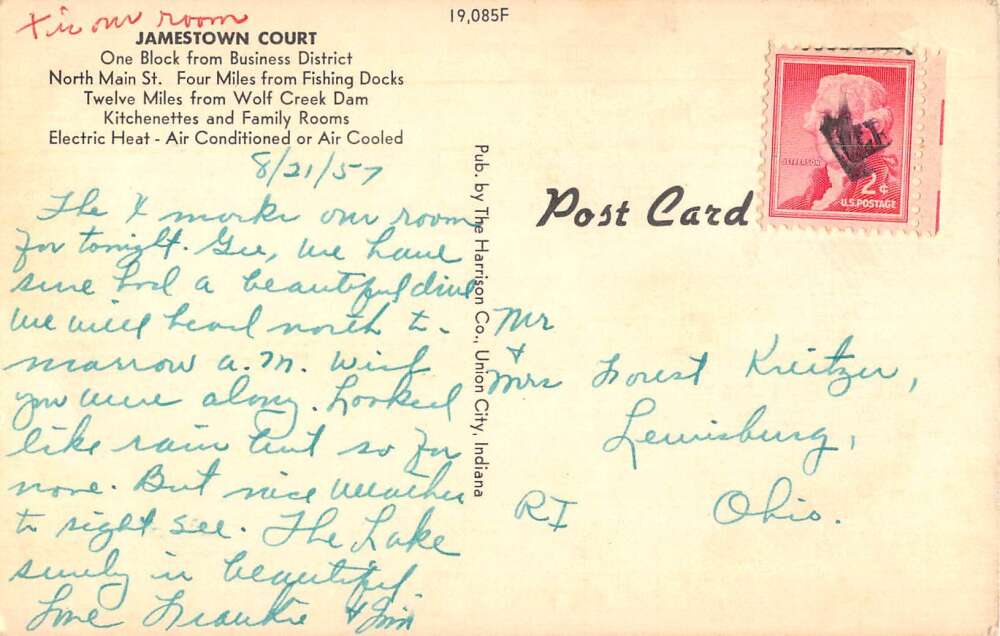 x is our room
19,085F
JAMESTOWN COURT
One Block from Business District
North Main St. Four Miles from Fishing Docks
Twelve Miles from Wolf Creek Dam
Kitchenettes and Family Rooms
Electric Heat - Air Conditioned or Air Cooled
8/21/57
The X marks our room
for tonight. Gee, we have
sure had a beautiful drive
We will head north to-
morrow a.m. Wish
you were along. Looked
like rain but so far
none. But nice weather
to sight see. The Lake
surely is beautiful
Love Frankie & Jim
Pub. by The Harrison Co., Union City, Indiana
Post Card
JEFFERSON
2¢
U.S. POSTAGE
Mr
+
Mrs Forest Kreitzer,
Lewisburg,
R1 Ohio.